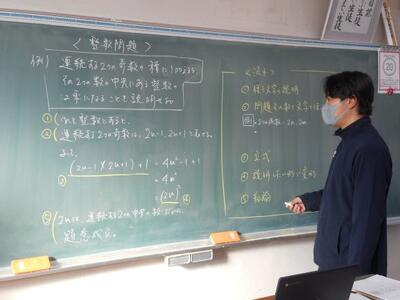 <整数問題>
例) 連続する2つの奇数の積に1加えると
2つの数の中央にある整数の
2乗になることを説明せよ
① nを整数とすると、
② 連続する2つの奇数は、2n-1, 2n+1と表せる
よって、
(2n-1)(2n+1)+1 = 4n²-1+1
③ = 4n²
= (2n)² ④
⑤ 2nは、連続する2つの
題意成立。
<流れ>
① 使う文字の説明
② 問題文の数を文字で
③ 立式
④ 説明したい形に変形
⑤ 結論